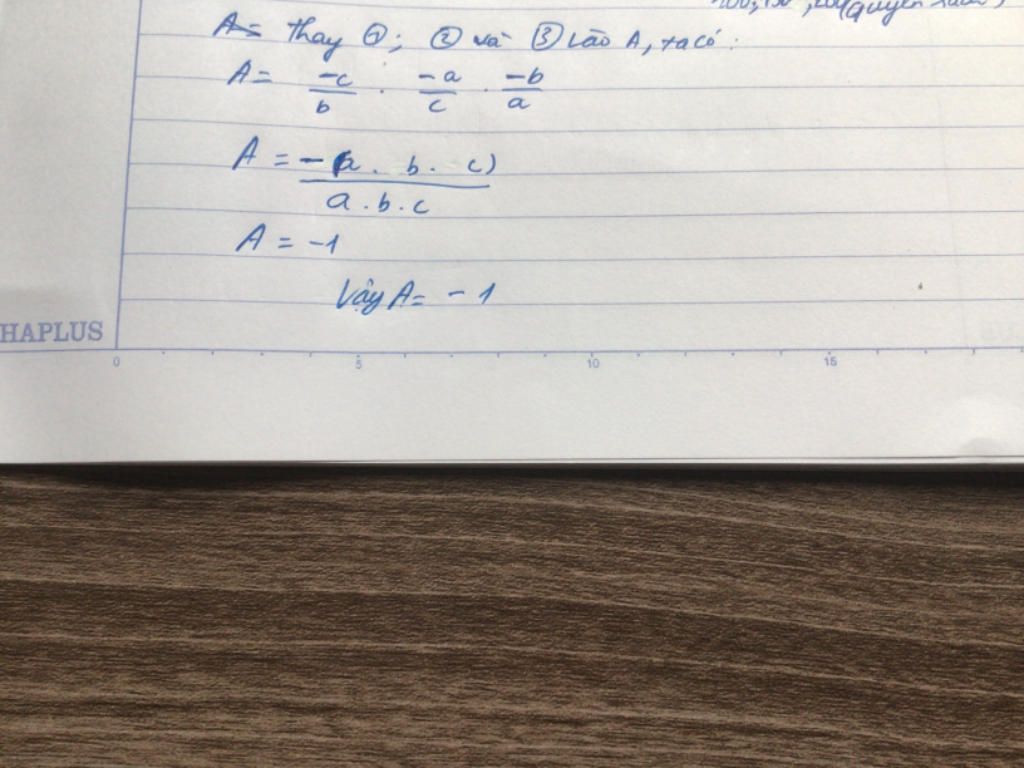 (quyển
A= thay ①; ② và ③ vào A, ta có:
A= -c/b . -a/c . -b/a
A = -(a. b. c)/a.b.c
A = -1
Vậy A= -1
HAPLUS
0 5 10 15